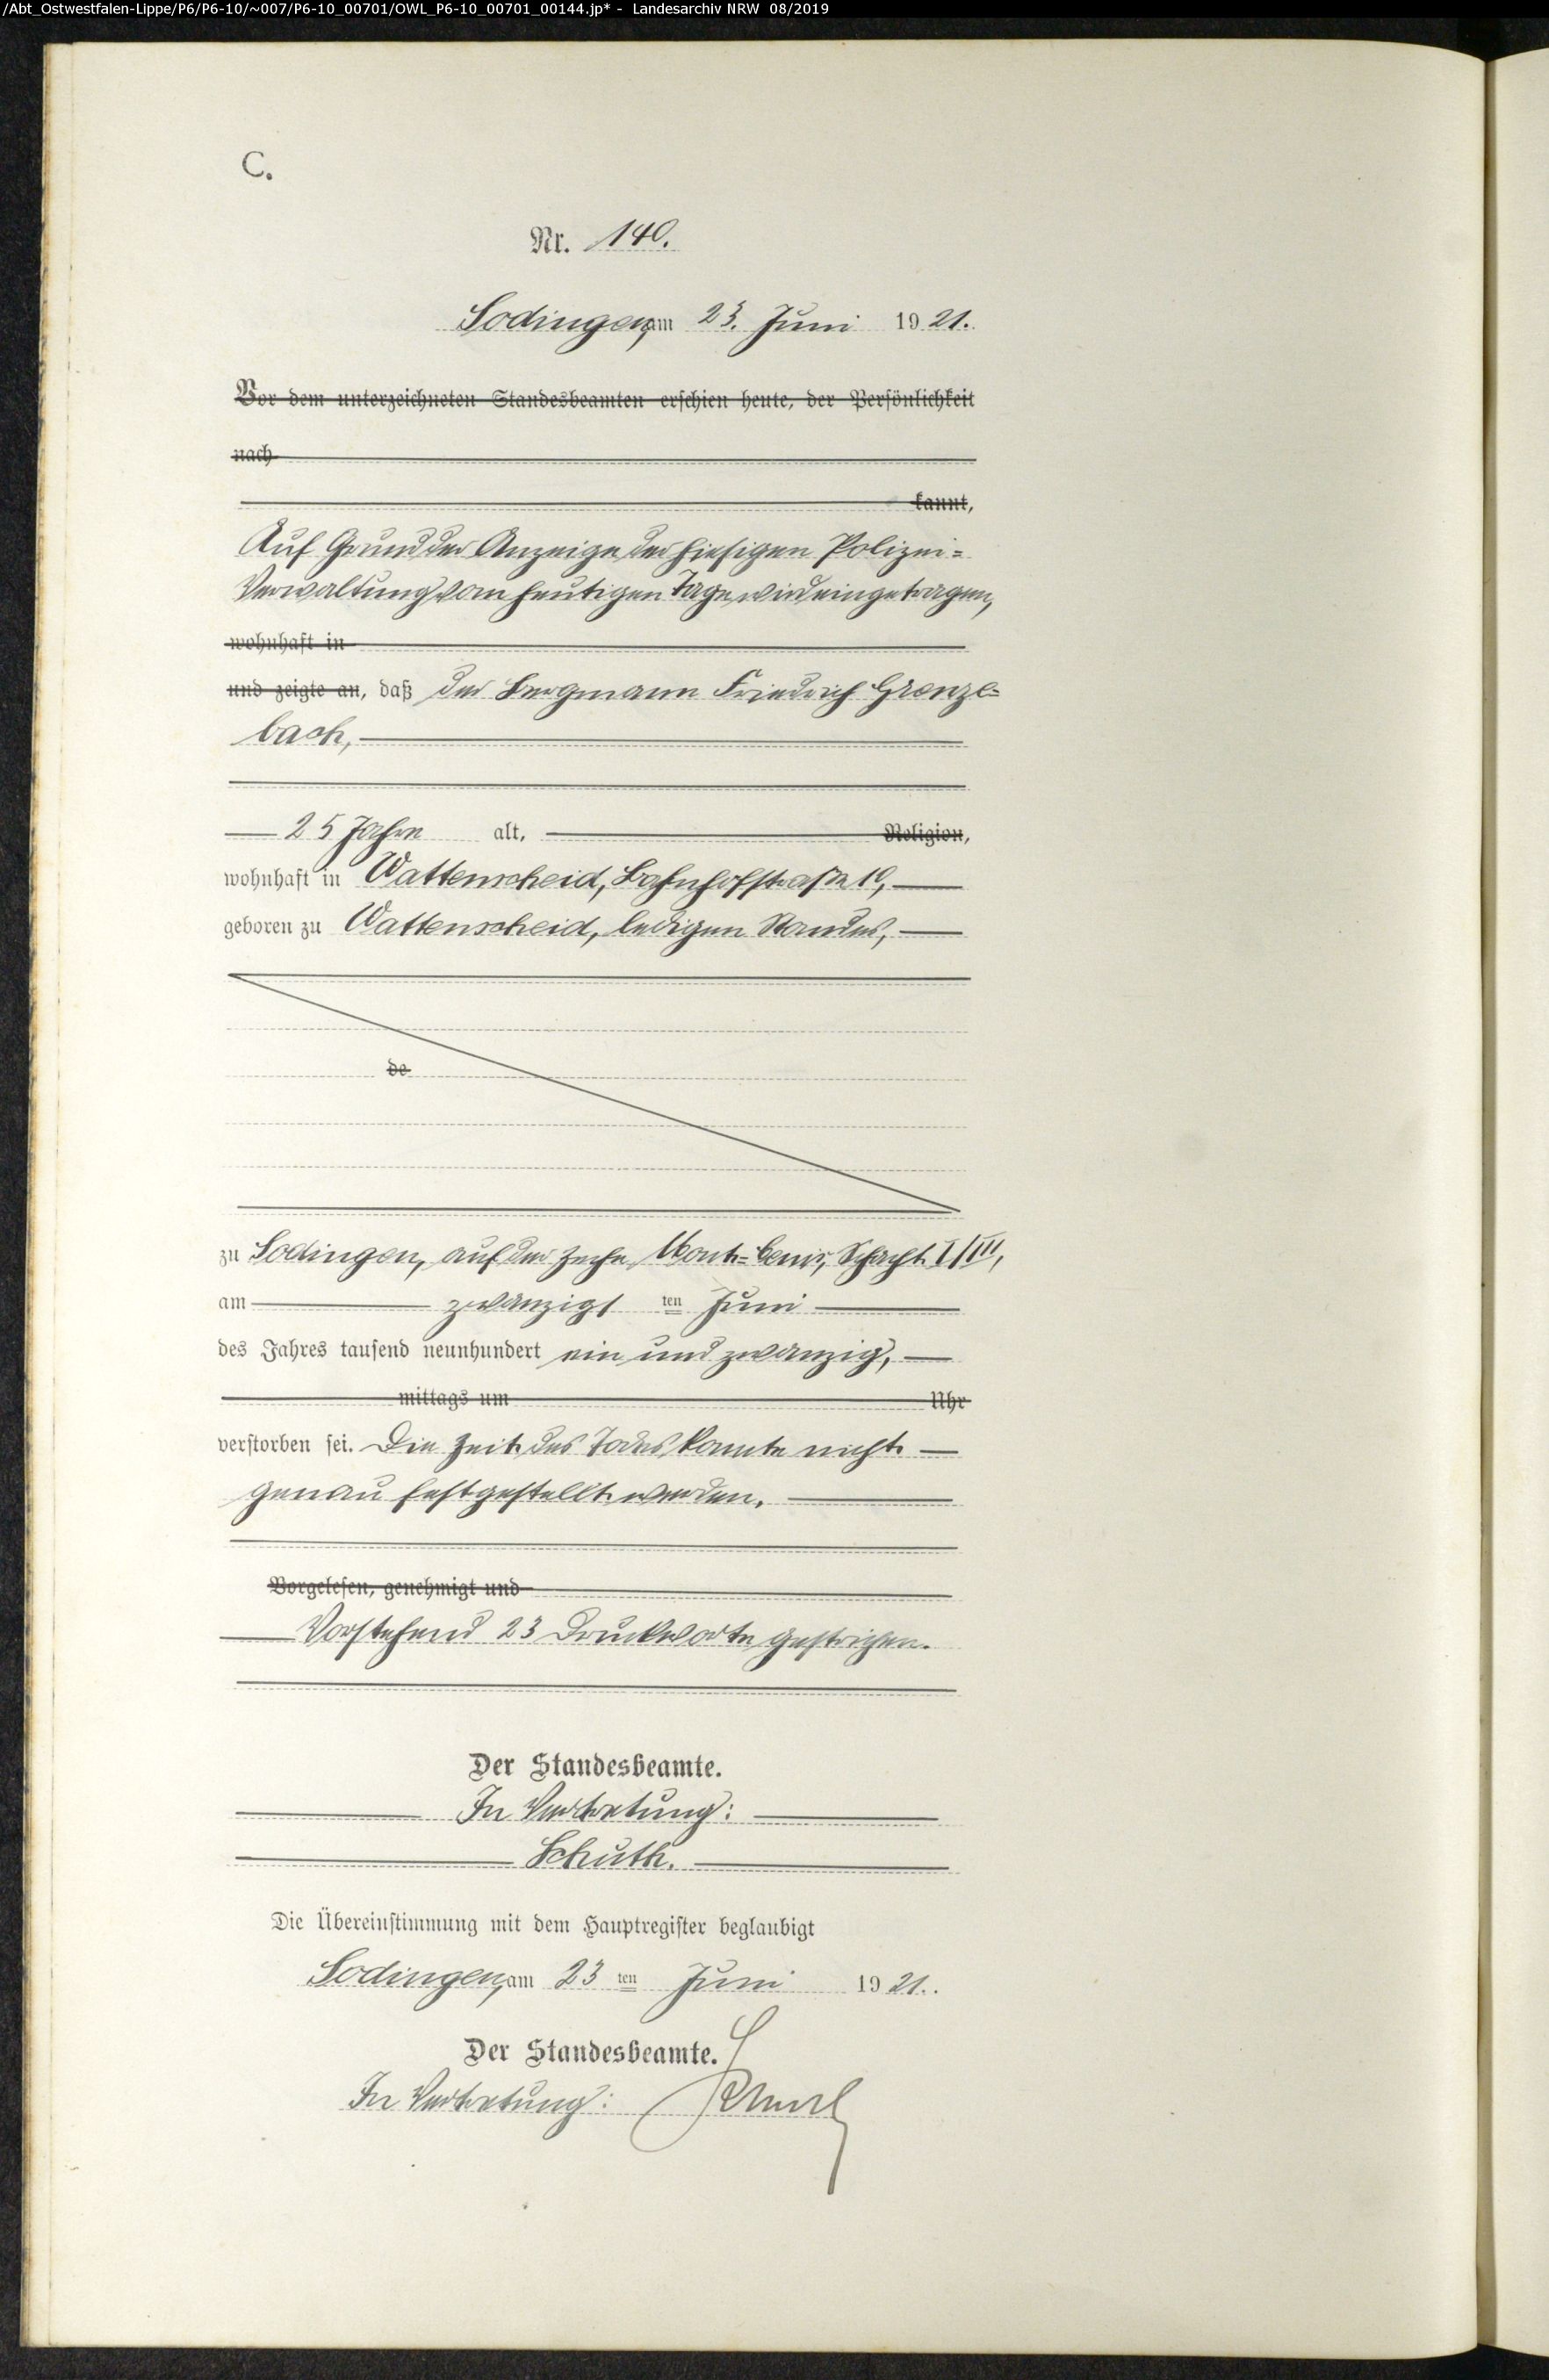 /Abt_Ostwestfalen-Lippe/P6/P6-10/~007/P6-10_00701/OWL_P6-10_00701_00144.jp* - Landesarchiv NRW 08/2019
C.
Nr. 140.
Sodingen, am 23. Juni 1921.
Vor dem unterzeichneten Standesbeamten erschien heute, der Persönlichkeit
nach
kannt,
Auf Grund der Anzeige der hiesigen Polizei=
Verwaltung vom heutigen Tage wird eingetragen,
wohnhaft in
und zeigte an, daß der Bergmann Friedrich Grenze=
bach,
25 Jahre alt, Religion,
wohnhaft in Wattenscheid, Bahnhofstraße 19,
geboren zu Wattenscheid, ledigen Standes,
de
zu Sodingen, auf der Zeche Mont=Cenis, Schacht I/III,
am zwanzigsten Juni
des Jahres tausend neunhundert ein und zwanzig,
mittags um Uhr
verstorben sei. Die Zeit des Todes konnte nicht
genau festgestellt werden.
Vorgelesen, genehmigt und
Vorstehend 23 Druckworte gestrichen.
Der Standesbeamte.
In Vertretung:
Schuth.
Die Übereinstimmung mit dem Hauptregister beglaubigt
Sodingen, am 23ten Juni 1921.
Der Standesbeamte.
In Vertretung: